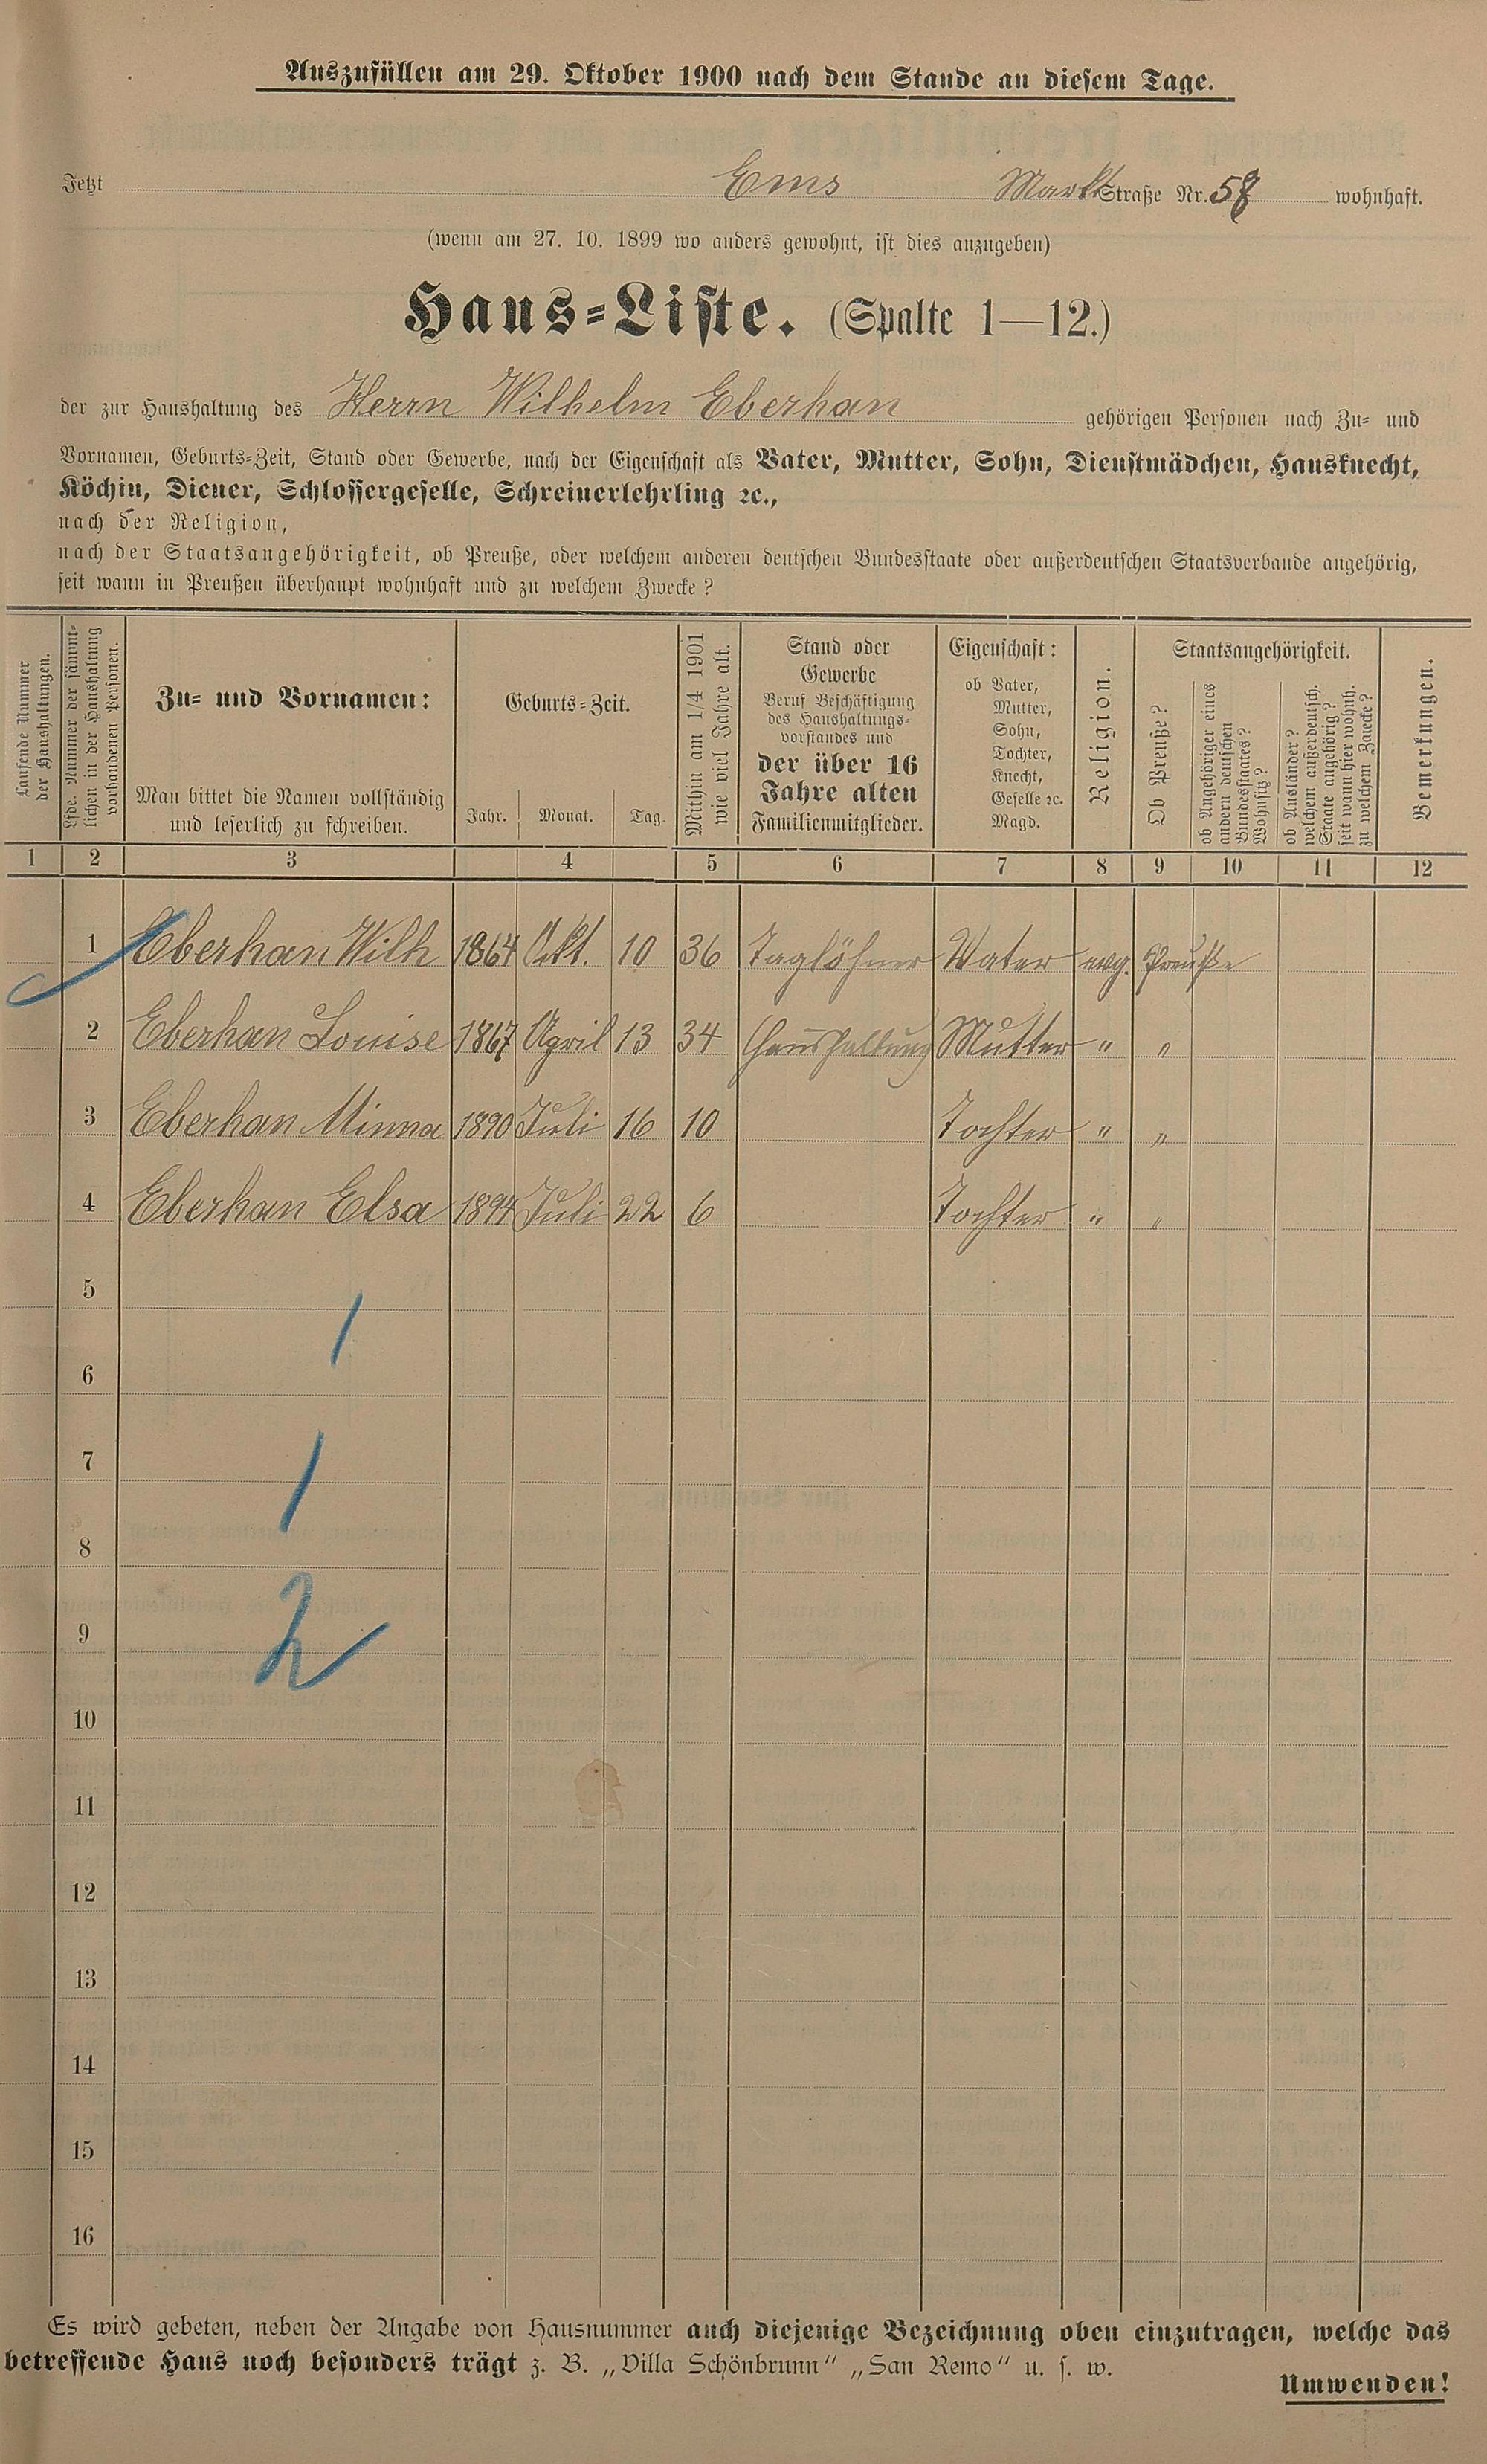 Auszufüllen am 29. Oktober 1900 nach dem Stande an diesem Tage.
Jetzt Ems Markt Straße Nr. 57 wohnhaft.
(wenn am 27. 10. 1899 wo anders gewohnt, ist dies anzugeben)
Haus-Liste. (Spalte 1—12.)
der zur Haushaltung des Herrn Wilhelm Eberhan gehörigen Personen nach Zu- und
Vornamen, Geburts-Zeit, Stand oder Gewerbe, nach der Eigenschaft als Vater, Mutter, Sohn, Dienstmädchen, Hausknecht,
Köchin, Diener, Schlossergeselle, Schreinerlehrling ꝛc.,
nach der Religion,
nach der Staatsangehörigkeit, ob Preuße, oder welchem anderen deutschen Bundesstaate oder außerdeutschen Staatsverbande angehörig,
seit wann in Preußen überhaupt wohnhaft und zu welchem Zwecke?
Laufende Nummer
der Haushaltungen.
Lfde. Nummer der sämmt-
lichen in der Haushaltung
vorhandenen Personen.
Zu- und Vornamen:
Man bittet die Namen vollständig
und leserlich zu schreiben.
Geburts-Zeit.
Jahr. Monat. Tag.
Mithin am 1/4 1901
wie viel Jahre alt.
Stand oder
Gewerbe
Beruf Beschäftigung
des Haushaltungs-
vorstandes und
der über 16
Jahre alten
Familienmitglieder.
Eigenschaft:
ob Vater,
Mutter,
Sohn,
Tochter,
Knecht,
Geselle ꝛc.
Magd.
Religion.
Staatsangehörigkeit.
Ob Preuße?
ob Angehöriger eines
andern deutschen
Bundesstaates?
Wohnsitz?
ob Ausländer?
welchem außerdeutsch.
Staate angehörig?
seit wann hier wohnh.
zu welchem Zwecke?
Bemerkungen.
1 2 3 4 5 6 7 8 9 10 11 12
1 Eberhan Wilh 1864 Okt. 10 36 Taglöhner Vater evg. Preuße
2 Eberhan Louise 1867 April 13 34 Haushaltung Mutter " "
3 Eberhan Minna 1890 Juli 16 10 Tochter " "
4 Eberhan Elsa 1894 Juli 22 6 Tochter " "
5
1
6
7
1
8
9
2
10
11
12
13
14
15
16
Es wird gebeten, neben der Angabe von Hausnummer auch diejenige Bezeichnung oben einzutragen, welche das
betreffende Haus noch besonders trägt z. B. „Villa Schönbrunn“ „San Remo“ u. s. w.
Umwenden!